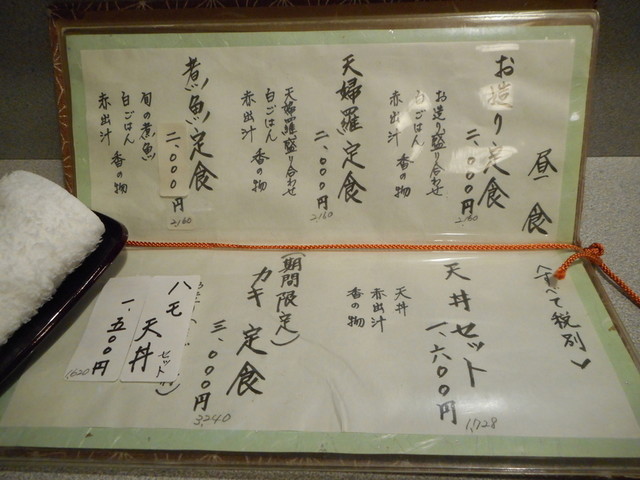 昼食
お造り定食
二、〇〇〇円
2,160
お造り盛り合わせ
白ごはん
赤出汁 香の物
天婦羅定食
二、〇〇〇円
2,160
天婦羅盛り合わせ
白ごはん
赤出汁 香の物
煮魚定食
二、〇〇〇円
2,160
旬の煮魚
白ごはん
赤出汁 香の物
〈すべて税別〉
天丼セット
一、六〇〇円
1,728
天丼
赤出汁
香の物
(期間限定)
カキ定食
三、〇〇〇円
3,240
ハモ天丼
セット
一、五〇〇円
1,620